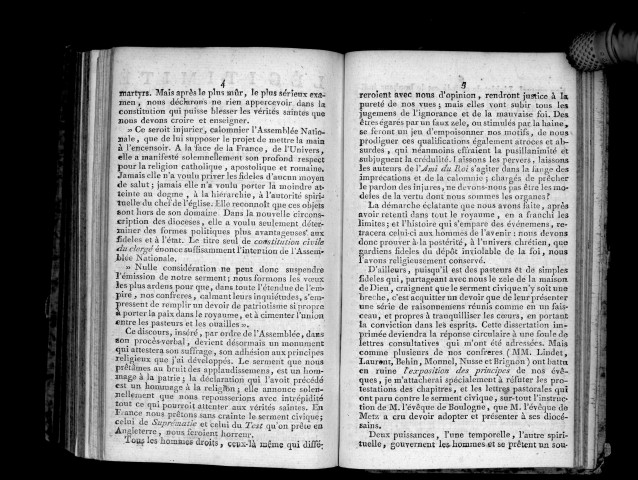 4
martyrs. Mais après le plus mûr, le plus sérieux exa-
men, nous déclarons ne rien appercevoir dans la
constitution qui puisse blesser les vérités saintes que
nous devons croire et enseigner.
» Ce seroit injurier, calomnier l'Assemblée Natio-
nale, que de lui supposer le projet de mettre la main
à l'encensoir. A la face de la France, de l'Univers,
elle a manifesté solemnellement son profond respect
pour la religion catholique, apostolique et romaine.
Jamais elle n'a voulu priver les fideles d'aucun moyen
de salut; jamais elle n'a voulu porter la moindre at-
teinte au dogme, à la hiérarchie, à l'autorité spiri-
tuelle du chef de l'église. Elle reconnoît que ces objets
sont hors de son domaine. Dans la nouvelle circons-
cription des dioceses, elle a voulu seulement déter-
miner des formes politiques plus avantageuses aux
fideles et à l'état. Le titre seul de constitution civile
du clergé énonce suffisamment l'intention de l'Assem-
blée Nationale.
» Nulle considération ne peut donc suspendre
l'émission de notre serment; nous formons les vœux
les plus ardens pour que, dans toute l'étendue de l'em-
pire, nos confreres, calmant leurs inquiétudes, s'em-
pressent de remplir un devoir de patriotisme si propre
à porter la paix dans le royaume, et à cimenter l'union
entre les pasteurs et les ouailles ».
Ce discours, inséré, par ordre de l'Assemblée, dans
son procès-verbal, devient désormais un monument
qui attestera son suffrage, son adhésion aux principes
religieux que j'ai développés. Le serment que nous
prêtâmes au bruit des applaudissemens, est un hom-
mage à la patrie; la déclaration qui l'avoit précédé
est un hommage à la religion; elle annonce solen-
nellement que nous repousserions avec intrépidité
tout ce qui pourroit attenter aux vérités saintes. En
France nous prêtons sans crainte le serment civique;
celui de Suprématie et celui du Test qu'on prête en
Angleterre, nous feroient horreur.
Tous les hommes droits, ceux-là même qui diffé-
5
reroient avec nous d'opinion, rendront justice à la
pureté de nos vues; mais elles vont subir tous les
jugemens de l'ignorance et de la mauvaise foi. Des
êtres égarés par un faux zele, ou stimulés par la haine,
se feront un jeu d'empoisonner nos motifs, de nous
prodiguer ces qualifications également atroces et ab-
surdes, qui néanmoins effraient la pusillanimité et
subjuguent la crédulité. Laissons les pervers, laissons
les auteurs de l'Ami du Roi s'agiter dans la fange des
imprécations et de la calomnie; chargés de prêcher
le pardon des injures, ne devons-nous pas être les mo-
deles de la vertu dont nous sommes les organes?
La démarche éclatante que nous avons faite, après
avoir retenti dans tout le royaume, en a franchi les
limites; et l'histoire qui s'empare des événemens, re-
tracera celui-ci aux hommes de l'avenir: nous devons
donc prouver à la postérité, à l'univers chrétien, que
gardiens fideles du dépôt inviolable de la foi, nous
l'avons religieusement conservé.
D'ailleurs, puisqu'il est des pasteurs et de simples
fideles qui, partageant avec nous le zele de la maison
de Dieu, craignent que le serment civique n'y soit une
breche, c'est acquitter un devoir que de leur présenter
une série de raisonnemens réunis comme en un fais-
ceau, et propres à tranquilliser les cœurs, en portant
la conviction dans les esprits. Cette dissertation im-
primée deviendra la réponse circulaire à une foule de
lettres consultatives qui m'ont été adressées. Mais
comme plusieurs de nos confreres (MM. Lindet,
Laurent, Behin, Monnel, Nusse et Brignon) ont battu
en ruine l'exposition des principes de nos évê-
ques, je m'attacherai spécialement à réfuter les pro-
testations des chapitres, et les lettres pastorales qui
ont paru contre le serment civique, sur-tout l'instruc-
tion de M. l'évêque de Boulogne, que M. l'évêque de
Metz a cru devoir adopter et présenter à ses diocé-
sains.
Deux puissances, l'une temporelle, l'autre spiri-
tuelle, gouvernent les hommes et se prêtent un sou-